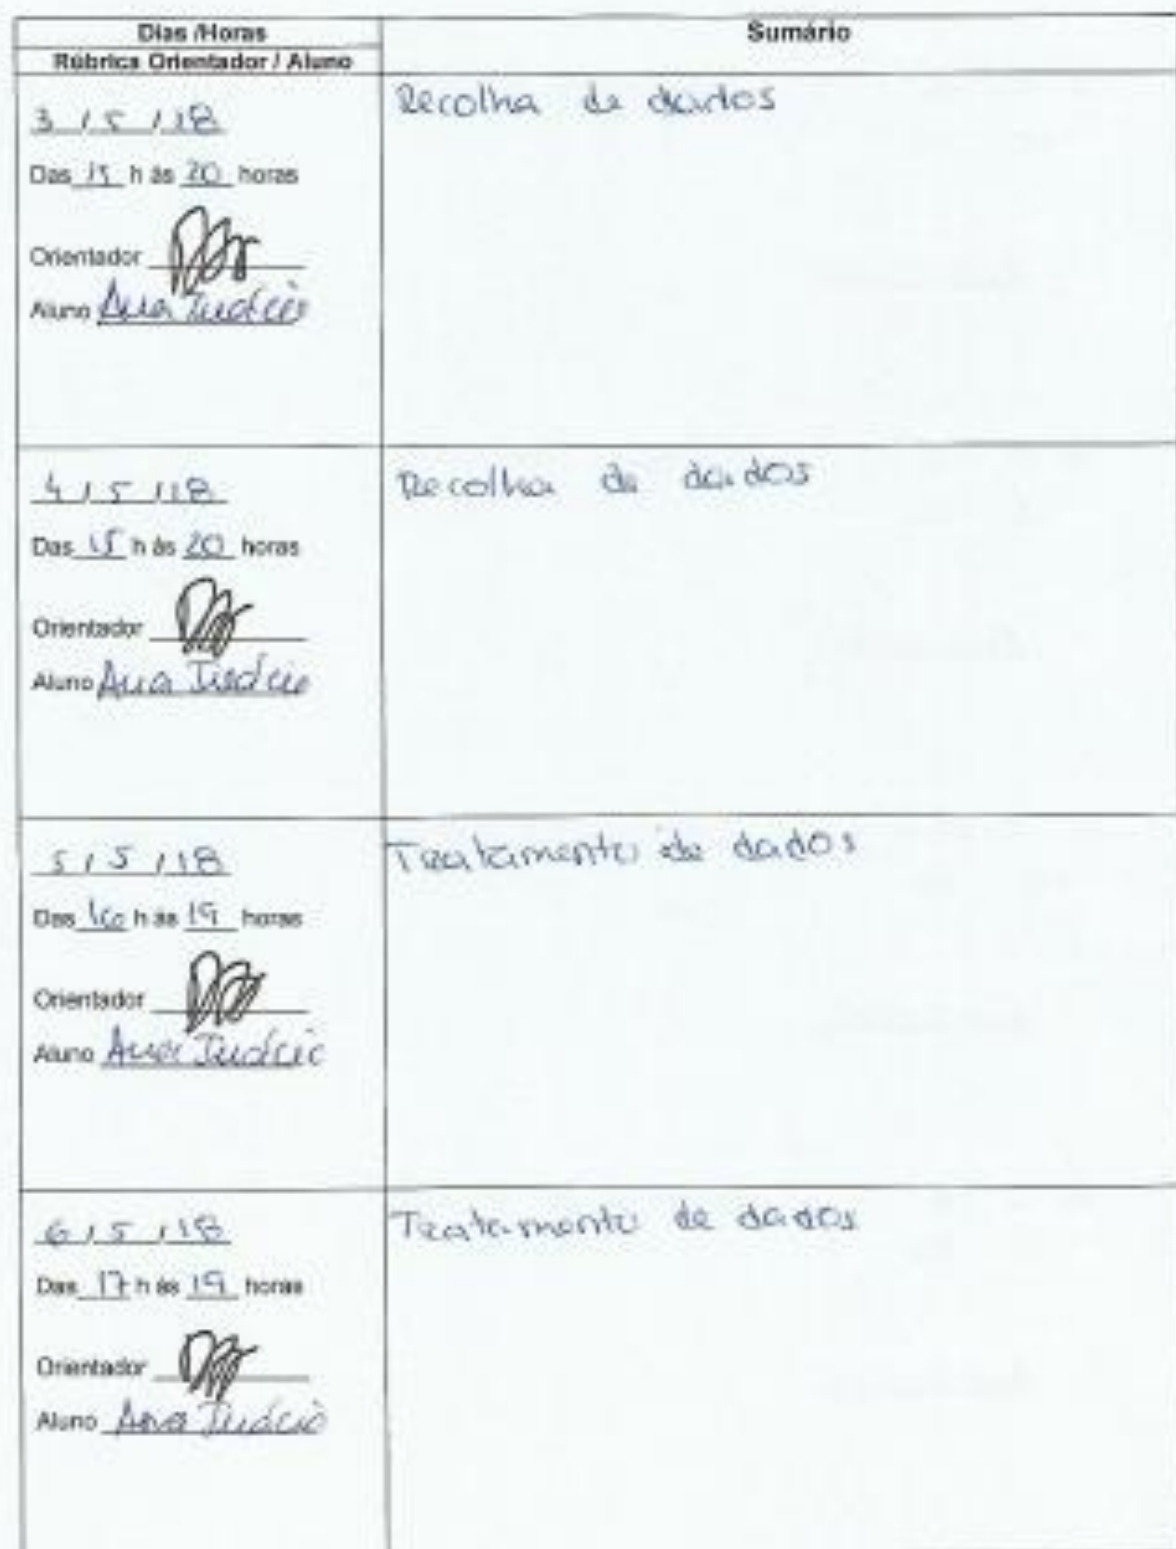 Dias /Horas
Rúbrica Orientador / Aluno
Sumário
3 / 5 / 18
Das 15 h às 20 horas
Orientador
Aluno Ana
Recolha de dados
4 / 5 / 18
Das 15 h às 20 horas
Orientador
Aluno Ana
Recolha de dados
5 / 5 / 18
Das 16 h às 19 horas
Orientador
Aluno Ana
Tratamento de dados
6 / 5 / 18
Das 17 h às 19 horas
Orientador
Aluno Ana
Tratamento de dados